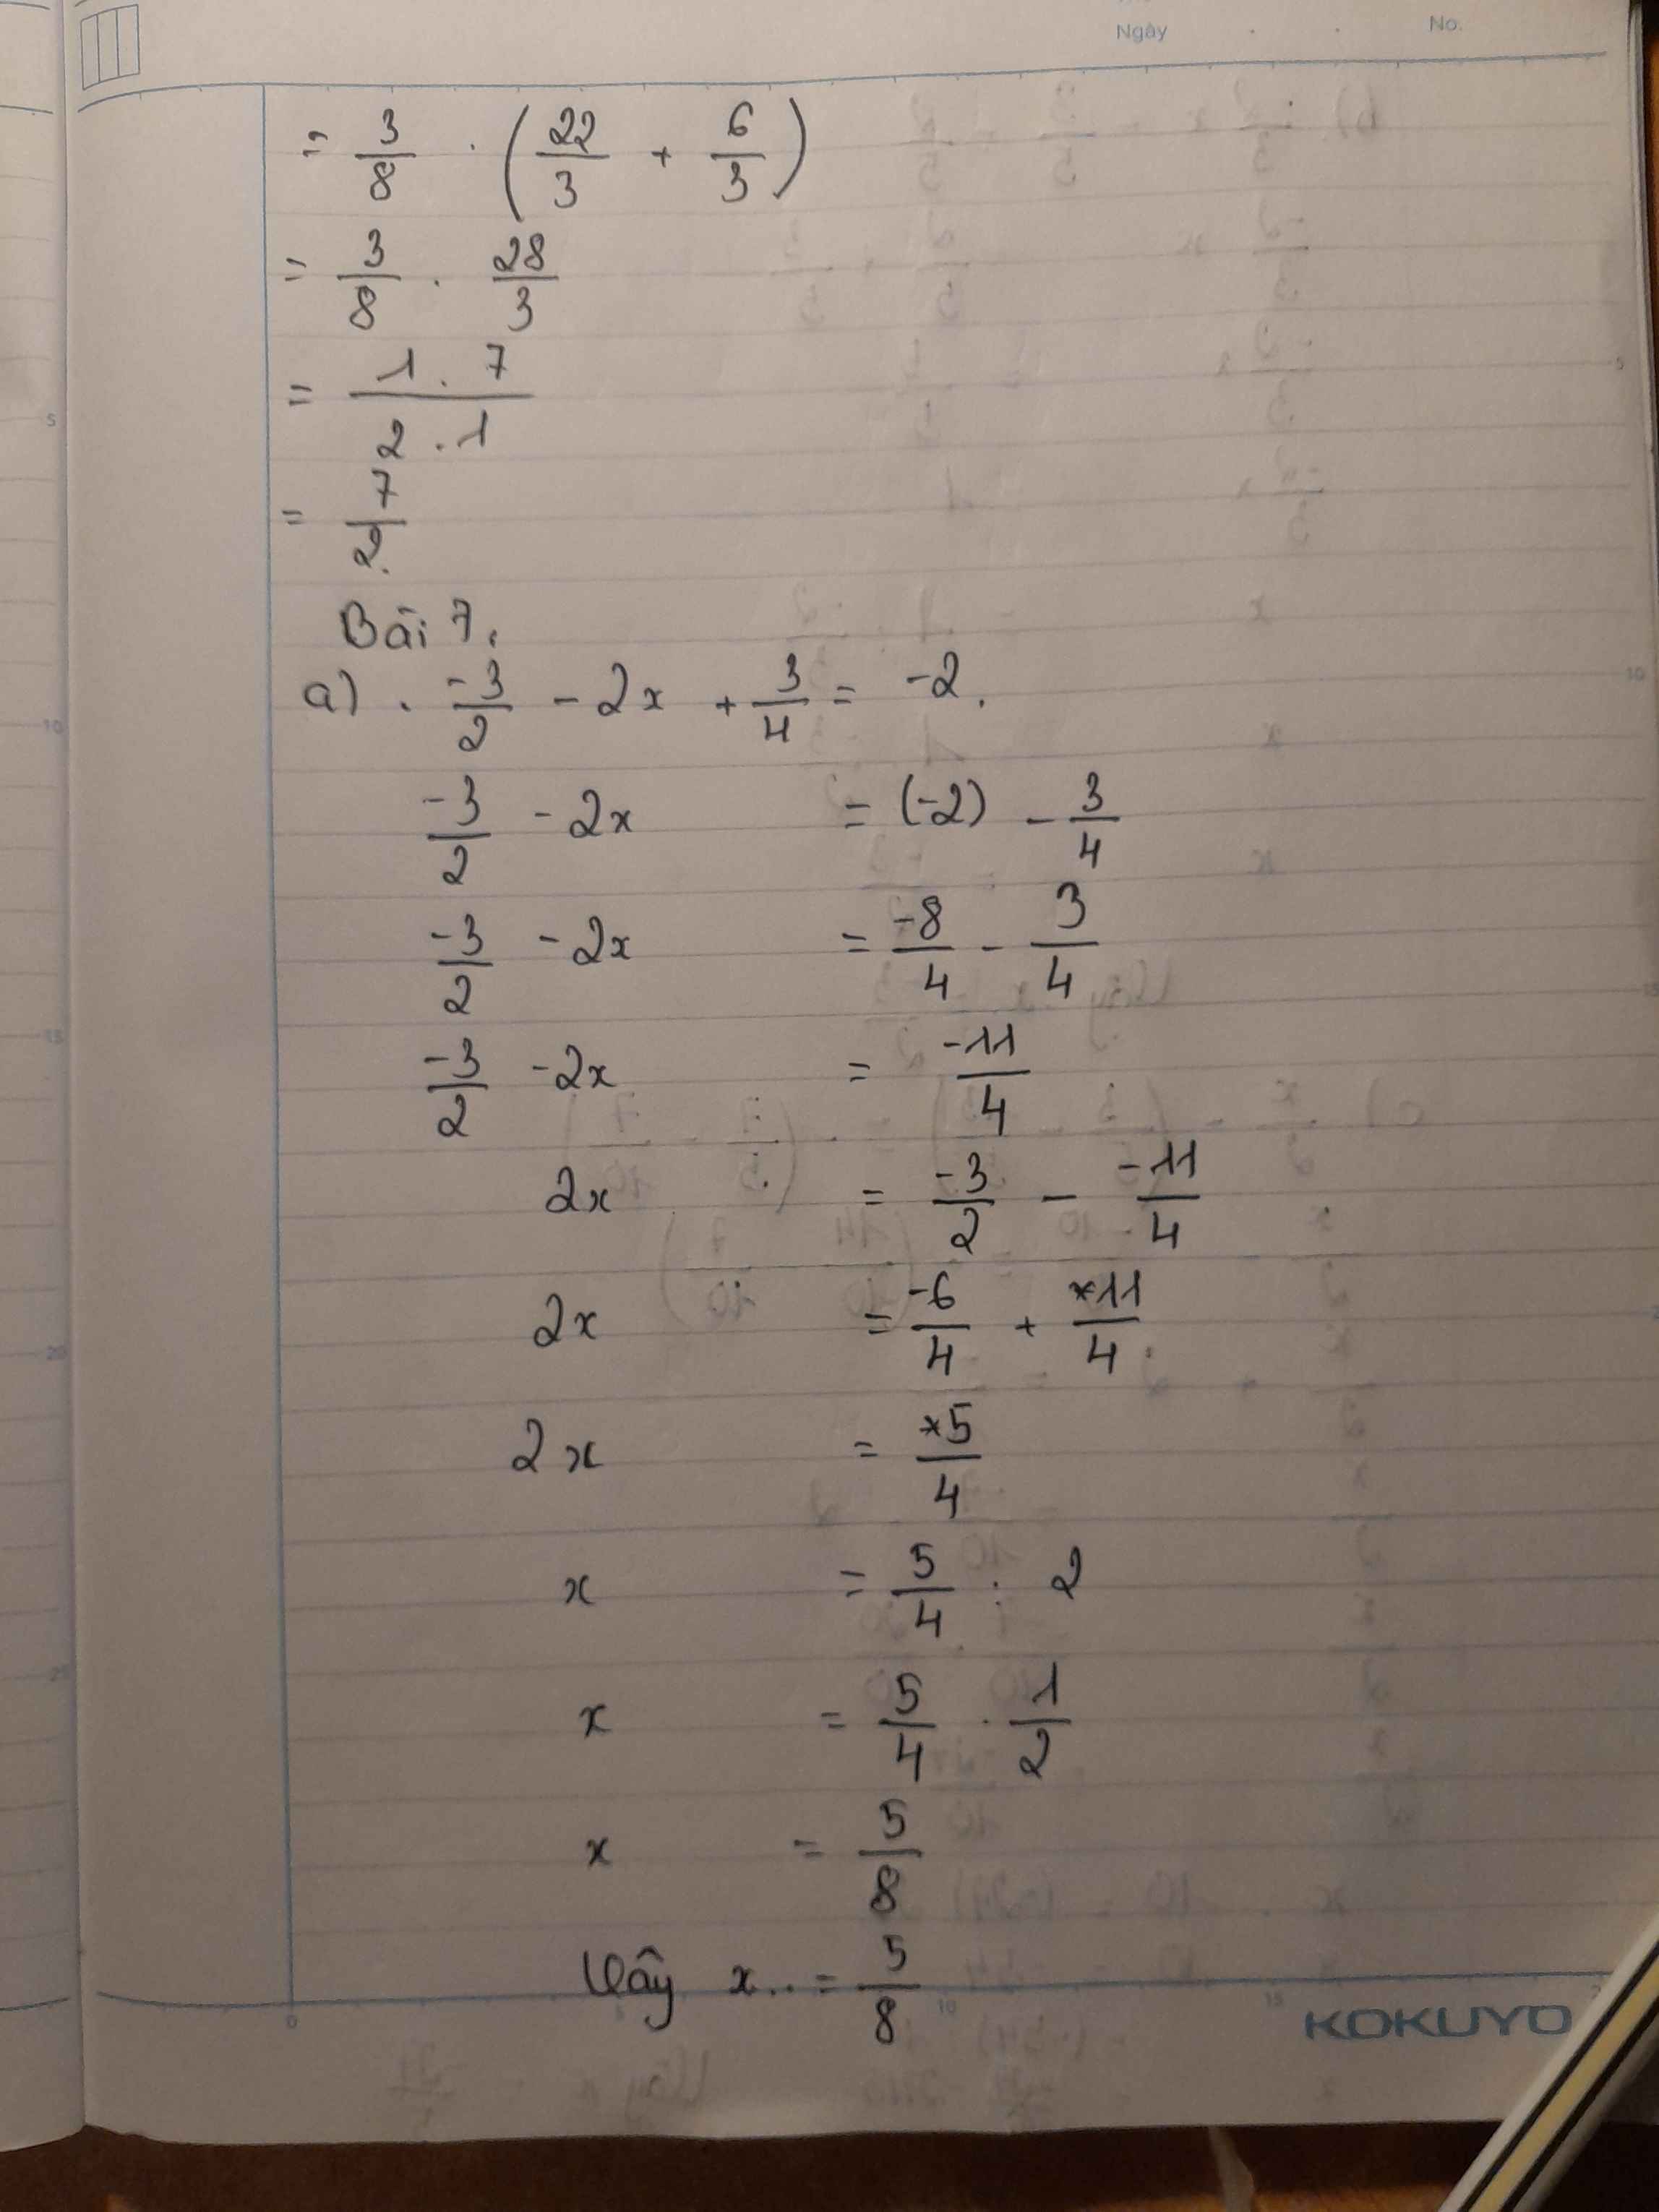 Ngày No.
= 3/8 . (22/3 + 6/3)
= 3/8 . 28/3
= 1 . 7 / 2 . 1
= 7/2
Bài 7.
a) . -3/2 - 2x + 3/4 = -2.
-3/2 - 2x = (-2) - 3/4
-3/2 - 2x = -8/4 - 3/4
-3/2 - 2x = -11/4
2x = -3/2 - -11/4
2x = -6/4 + 11/4
2x = 5/4
x = 5/4 : 2
x = 5/4 . 1/2
x = 5/8
Vậy x = 5/8
KOKUYO